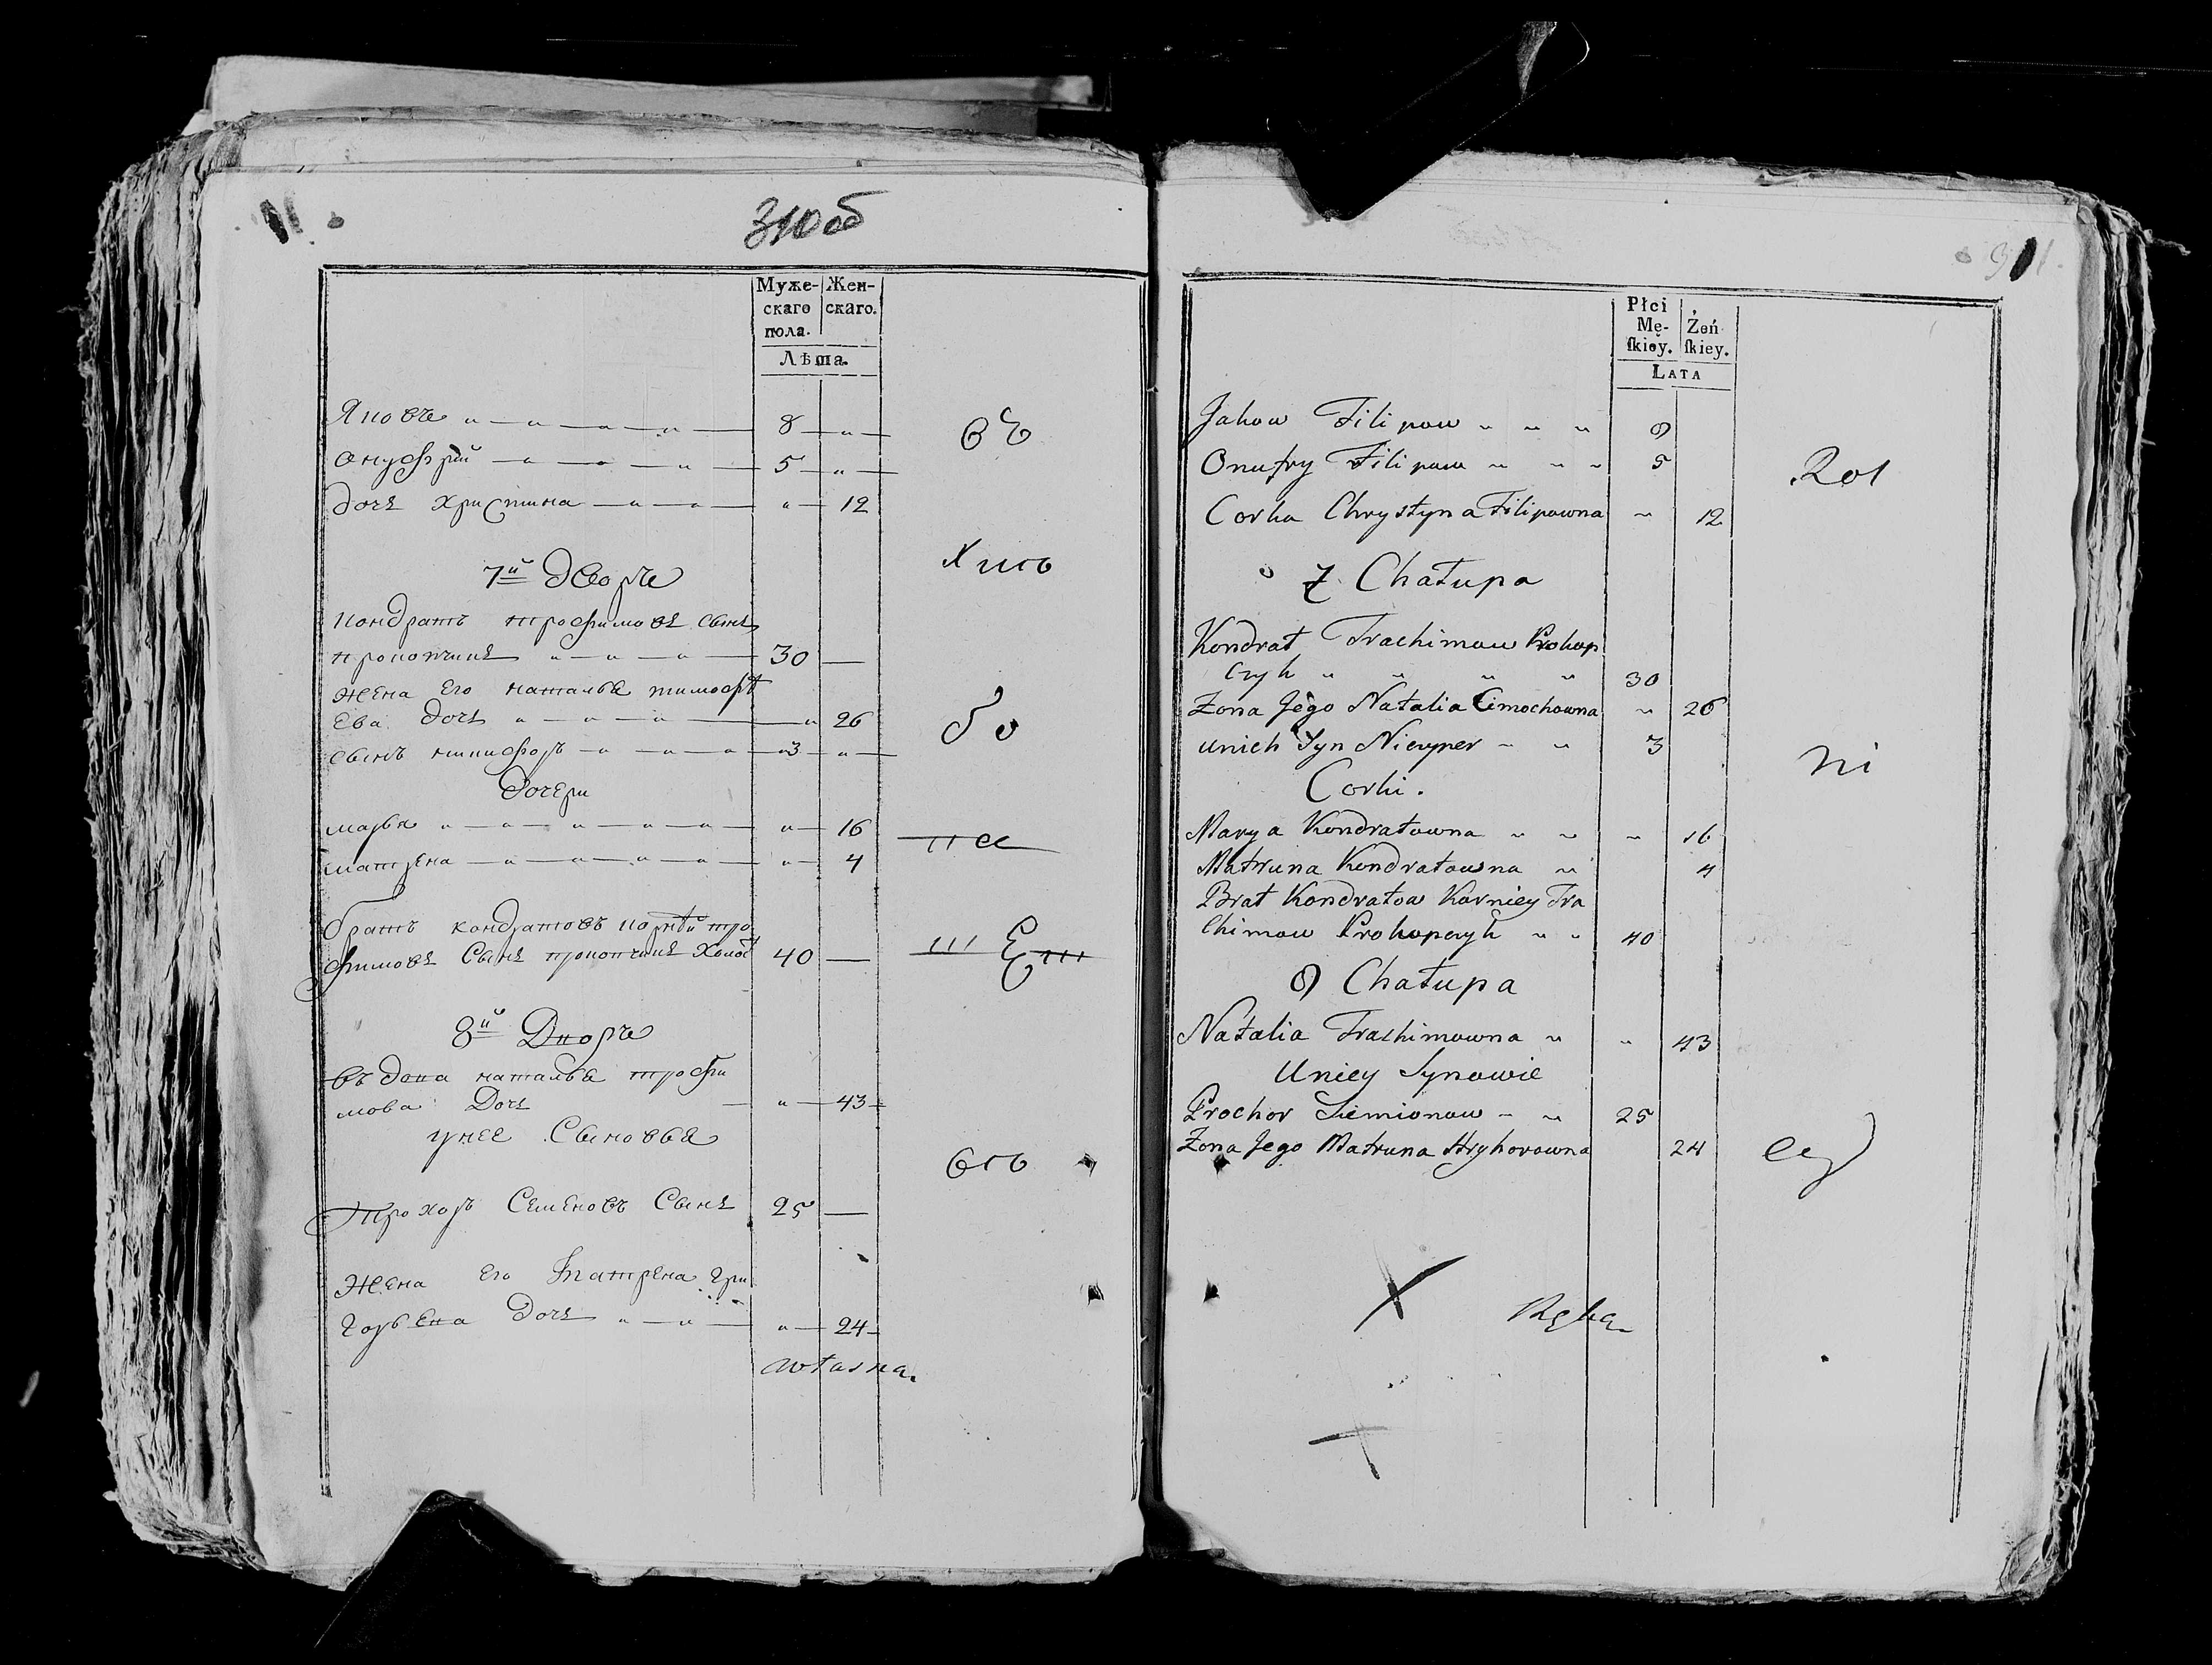 310 об
Муже- Жен-
скаго скаго.
пола.
Лѣта.
Яковъ 8
Онуфрий 5
дочь Христина 12
7й дворъ
Кондратъ трофимовъ Сынъ
прокопчикъ 30
Жена Его наталья тимофѣ
Ева дочь 26
Сынъ никифоръ 3
Дочери
марья 16
матрена 4
братъ кондратовъ корнѣй тро
фимовъ Сынъ прокопчикъ Холос 40
8й Дворъ
въдова наталья трофи
мова Дочь 43
унее Сыновья
Прохоръ Семеновъ Сынъ 25
Жена Его Матрена гри
горьева Дочь 24
własna.
311.
Płci
Mę- Żeń
skiey. skiey.
LATA
Jakow Filipow 8
Onufry Filipow 5
Corka Chrystyna Filipowna 12
7 Chałupa
Kondrat Trachimow Prokop
czyk 30
Zona Jego Natalia Cimochowna 26
unich Syn Nicyper 3
Corki.
Marya Kondratowna 16
Matruna Kondratowna 4
Brat Kondratow Karniey Tra
chimow Prokopczyk 40
8 Chałupa
Natalia Trachimowna 43
Uniey Synowie
Prochor Siemionow 25
Zona Jego Matruna Hryhorowna 24
Ręka